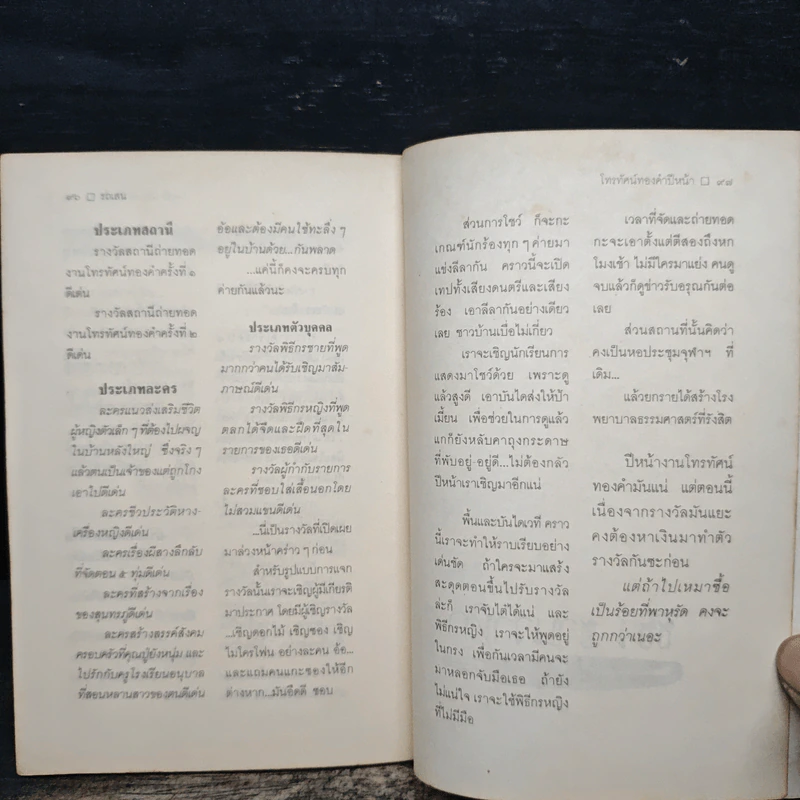 ๙๖ ❑ รถเสน
ประเภทสถานี
รางวัลสถานีถ่ายทอด
งานโทรทัศน์ทองคำครั้งที่ ๑
ดีเด่น
รางวัลสถานีถ่ายทอด
งานโทรทัศน์ทองคำครั้งที่ ๒
ดีเด่น
ประเภทละคร
ละครแนวส่งเสริมชีวิต
ผู้หญิงตัวเล็ก ๆ ที่ต้องไปผจญ
ในบ้านหลังใหญ่ ซึ่งจริง ๆ
แล้วตนเป็นเจ้าของแต่ถูกโกง
เอาไปดีเด่น
ละครชีวประวัติหาง-
เครื่องหญิงดีเด่น
ละครเรื่องผีสางลึกลับ
ที่จัดตอน ๕ ทุ่มดีเด่น
ละครที่สร้างจากเรื่อง
ของสุนทรภู่ดีเด่น
ละครสร้างสรรค์สังคม
ครอบครัวที่คุณปู่ยังหนุ่ม และ
ไปรักกับครูโรงเรียนอนุบาล
ที่สอนหลานสาวของตนดีเด่น
อ้อและต้องมีคนใช้ทะลึ่ง ๆ
อยู่ในบ้านด้วย...กันพลาด
...แค่นี้ก็คงจะครบทุก
ค่ายกันแล้วนะ
ประเภทตัวบุคคล
รางวัลพิธีกรชายที่พูด
มากกว่าคนได้รับเชิญมาสัม-
ภาษณ์ดีเด่น
รางวัลพิธีกรหญิงที่พูด
ตลกได้จืดและฝืดที่สุดใน
รายการของเธอดีเด่น
รางวัลผู้กำกับรายการ
ละครที่ชอบใส่เสื้อนอกโดย
ไม่สวมแขนดีเด่น
...นี่เป็นรางวัลที่เปิดเผย
มาล่วงหน้าคร่าว ๆ ก่อน
สำหรับรูปแบบการแจก
รางวัลนั้นเราจะเชิญผู้มีเกียรติ
มาประกาศ โดยมีผู้เชิญรางวัล
...เชิญดอกไม้ เชิญซอง เชิญ
ไมโครโฟน อย่างละคน อ้อ...
และแถมคนแกะซองให้อีก
ต่างหาก...มันอืดดี ชอบ
โทรทัศน์ทองคำปีหน้า ❑ ๙๗
ส่วนการโชว์ ก็จะกะ
เกณฑ์นักร้องทุก ๆ ค่ายมา
แข่งลีลากัน คราวนี้จะเปิด
เทปทั้งเสียงดนตรีและเสียง
ร้อง เอาลีลากันอย่างเดียว
เลย ชาวบ้านเบื่อไม่เกี่ยว
เราจะเชิญนักเรียนการ
แสดงมาโชว์ด้วย เพราะดู
แล้วสูงดี เอาบันไดส่งให้ป้า
เมี้ยน เพื่อช่วยในการดูแล้ว
แกก็ยังหลับคาถุงกระดาษ
ที่พับอยู่-อยู่ดี...ไม่ต้องกลัว
ปีหน้าเราเชิญมาอีกแน่
พื้นและบันไดเวที คราว
นี้เราจะทำให้ราบเรียบอย่าง
เด่นชัด ถ้าใครจะมาแสร้ง
สะดุดตอนขึ้นไปรับรางวัล
ล่ะก็ เราจับไต๋ได้แน่ และ
พิธีกรหญิง เราจะให้พูดอยู่
ในกรง เพื่อกันเวลามีคนจะ
มาหลอกจับมือเธอ ถ้ายัง
ไม่แน่ใจ เราจะใช้พิธีกรหญิง
ที่ไม่มีมือ
เวลาที่จัดและถ่ายทอด
กะจะเอาตั้งแต่ตีสองถึงหก
โมงเช้า ไม่มีใครมาแย่ง คนดู
จบแล้วก็ดูข่าวรับอรุณกันต่อ
เลย
ส่วนสถานที่นั้นคิดว่า
คงเป็นหอประชุมจุฬาฯ ที่
เดิม...
แล้วยกรายได้สร้างโรง
พยาบาลธรรมศาสตร์ที่รังสิต
ปีหน้างานโทรทัศน์
ทองคำมันแน่ แต่ตอนนี้
เนื่องจากรางวัลมันแยะ
คงต้องหาเงินมาทำตัว
รางวัลกันซะก่อน
แต่ถ้าไปเหมาซื้อ
เป็นร้อยที่พาหุรัด คงจะ
ถูกกว่าเนอะ